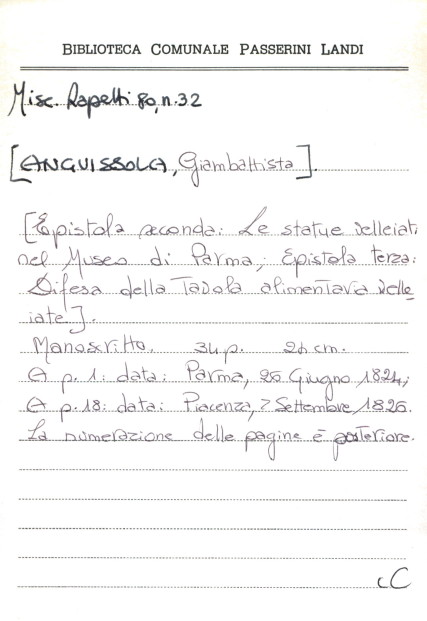 BIBLIOTECA COMUNALE PASSERINI LANDI
Misc. Rapetti 80, n. 32
[ANGUISSOLA, Giambattista].
[Epistola seconda: Le statue velleiati
nel Museo di Parma; Epistola terza:
Difesa della Tavola alimentaria velle
iate].
Manoscritto. 34 p. 26 cm.
A p. 1: data: Parma, 26 Giugno 1824;
A p. 18: data: Piacenza, 7 Settembre 1826.
La numerazione delle pagine è posteriore.
cC